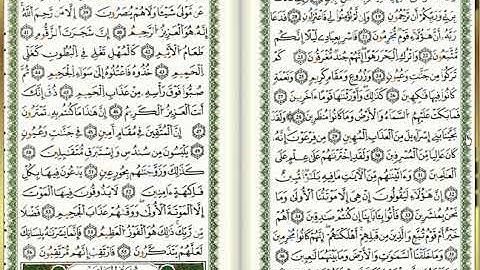 بِرَبِّي وَرَبِّكُمْ أَن تَرْجُمُونِ ۝ وَإِن لَّمْ تُؤْمِنُوا۟ لِي فَٱعْتَزِلُونِ ۝
فَدَعَا رَبَّهُۥٓ أَنَّ هَٰٓؤُلَآءِ قَوْمٌ مُّجْرِمُونَ ۝ فَأَسْرِ بِعِبَادِي لَيْلًا إِنَّكُم
مُّتَّبَعُونَ ۝ وَٱتْرُكِ ٱلْبَحْرَ رَهْوًا إِنَّهُمْ جُندٌ مُّغْرَقُونَ ۝ كَمْ
تَرَكُوا۟ مِن جَنَّٰتٍ وَعُيُونٍ ۝ وَزُرُوعٍ وَمَقَامٍ كَرِيمٍ ۝ وَنَعْمَةٍ
كَانُوا۟ فِيهَا فَٰكِهِينَ ۝ كَذَٰلِكَ وَأَوْرَثْنَٰهَا قَوْمًا ءَاخَرِينَ ۝
فَمَا بَكَتْ عَلَيْهِمُ ٱلسَّمَآءُ وَٱلْأَرْضُ وَمَا كَانُوا۟ مُنظَرِينَ ۝ وَلَقَدْ
نَجَّيْنَا بَنِيٓ إِسْرَٰٓءِيلَ مِنَ ٱلْعَذَابِ ٱلْمُهِينِ ۝ مِن فِرْعَوْنَ إِنَّهُۥ
كَانَ عَالِيًا مِّنَ ٱلْمُسْرِفِينَ ۝ وَلَقَدِ ٱخْتَرْنَٰهُمْ عَلَىٰ عِلْمٍ عَلَى
ٱلْعَٰلَمِينَ ۝ وَءَاتَيْنَٰهُم مِّنَ ٱلْءَايَٰتِ مَا فِيهِ بَلَٰٓؤٌا۟ مُّبِينٌ ۝
إِنَّ هَٰٓؤُلَآءِ لَيَقُولُونَ ۝ إِنْ هِيَ إِلَّا مَوْتَتُنَا ٱلْأُولَىٰ وَمَا
نَحْنُ بِمُنشَرِينَ ۝ فَأْتُوا۟ بِـَٔابَآئِنَآ إِن كُنتُمْ صَٰدِقِينَ ۝ أَهُمْ
خَيْرٌ أَمْ قَوْمُ تُبَّعٍ وَٱلَّذِينَ مِن قَبْلِهِمْ أَهْلَكْنَٰهُمْ إِنَّهُمْ كَانُوا۟ مُجْرِمِينَ ۝
عَن مَّوْلًى شَيْـًٔا وَلَا هُمْ يُنصَرُونَ ۝ إِلَّا مَن رَّحِمَ ٱللَّهُ
إِنَّهُۥ هُوَ ٱلْعَزِيزُ ٱلرَّحِيمُ ۝ إِنَّ شَجَرَتَ ٱلزَّقُّومِ ۝
طَعَامُ ٱلْأَثِيمِ ۝ كَٱلْمُهْلِ يَغْلِي فِي ٱلْبُطُونِ ۝ كَغَلْيِ
ٱلْحَمِيمِ ۝ خُذُوهُ فَٱعْتِلُوهُ إِلَىٰ سَوَآءِ ٱلْجَحِيمِ ۝ ثُمَّ
صُبُّوا۟ فَوْقَ رَأْسِهِۦ مِنْ عَذَابِ ٱلْحَمِيمِ ۝ ذُقْ إِنَّكَ
أَنتَ ٱلْعَزِيزُ ٱلْكَرِيمُ ۝ إِنَّ هَٰذَا مَا كُنتُم بِهِۦ تَمْتَرُونَ
۝ إِنَّ ٱلْمُتَّقِينَ فِي مَقَامٍ أَمِينٍ ۝ فِي جَنَّٰتٍ وَعُيُونٍ ۝
يَلْبَسُونَ مِن سُندُسٍ وَإِسْتَبْرَقٍ مُّتَقَٰبِلِينَ ۝
كَذَٰلِكَ وَزَوَّجْنَٰهُم بِحُورٍ عِينٍ ۝ يَدْعُونَ فِيهَا بِكُلِّ
فَٰكِهَةٍ ءَامِنِينَ ۝ لَا يَذُوقُونَ فِيهَا ٱلْمَوْتَ
إِلَّا ٱلْمَوْتَةَ ٱلْأُولَىٰ وَوَقَىٰهُمْ عَذَابَ ٱلْجَحِيمِ ۝ فَضْلًا
مِّن رَّبِّكَ ذَٰلِكَ هُوَ ٱلْفَوْزُ ٱلْعَظِيمُ ۝ فَإِنَّمَا يَسَّرْنَٰهُ بِلِسَانِكَ
لَعَلَّهُمْ يَتَذَكَّرُونَ ۝ فَٱرْتَقِبْ إِنَّهُم مُّرْتَقِبُونَ ۝